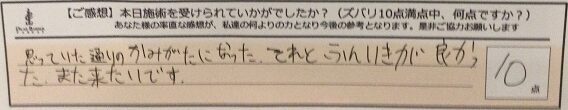 【ご感想】本日施術を受けられていかがでしたか？（ズバリ10点満点中、何点ですか？）
あなた様の率直な感想が、私達の何よりの力となり今後の参考となります。是非ご協力お願いします
思っていた通りのかみがたになった。それと ふんいきが 良かっ
た。また来たいです。
10
点